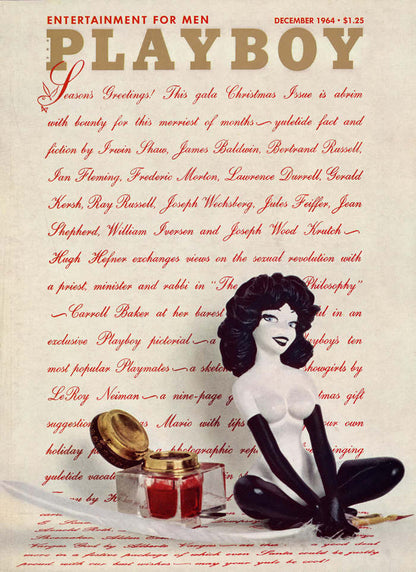 ENTERTAINMENT FOR MEN
DECEMBER 1964 • $1.25
PLAYBOY
Season's Greetings! This gala Christmas Issue is abrim
with bounty for this merriest of months — yuletide fact and
fiction by Irwin Shaw, James Baldwin, Bertrand Russell,
Ian Fleming, Frederic Morton, Lawrence Durrell, Gerald
Kersh, Ray Russell, Joseph Wechsberg, Jules Feiffer, Jean
Shepherd, William Iversen and Joseph Wood Krutch —
Hugh Hefner exchanges views on the sexual revolution with
a priest, minister and rabbi in "The Philosophy"
— Carroll Baker at her barest in an
exclusive Playboy pictorial — a ayboy's ten
most popular Playmates — a sketch howgirls by
LeRoy Neiman — a nine-page tmas gift
suggestion Mario with tips our own
holiday photographic inging
yuletide by
of which even Santa would be justly
proud with our best wishes — may your yule be cool!